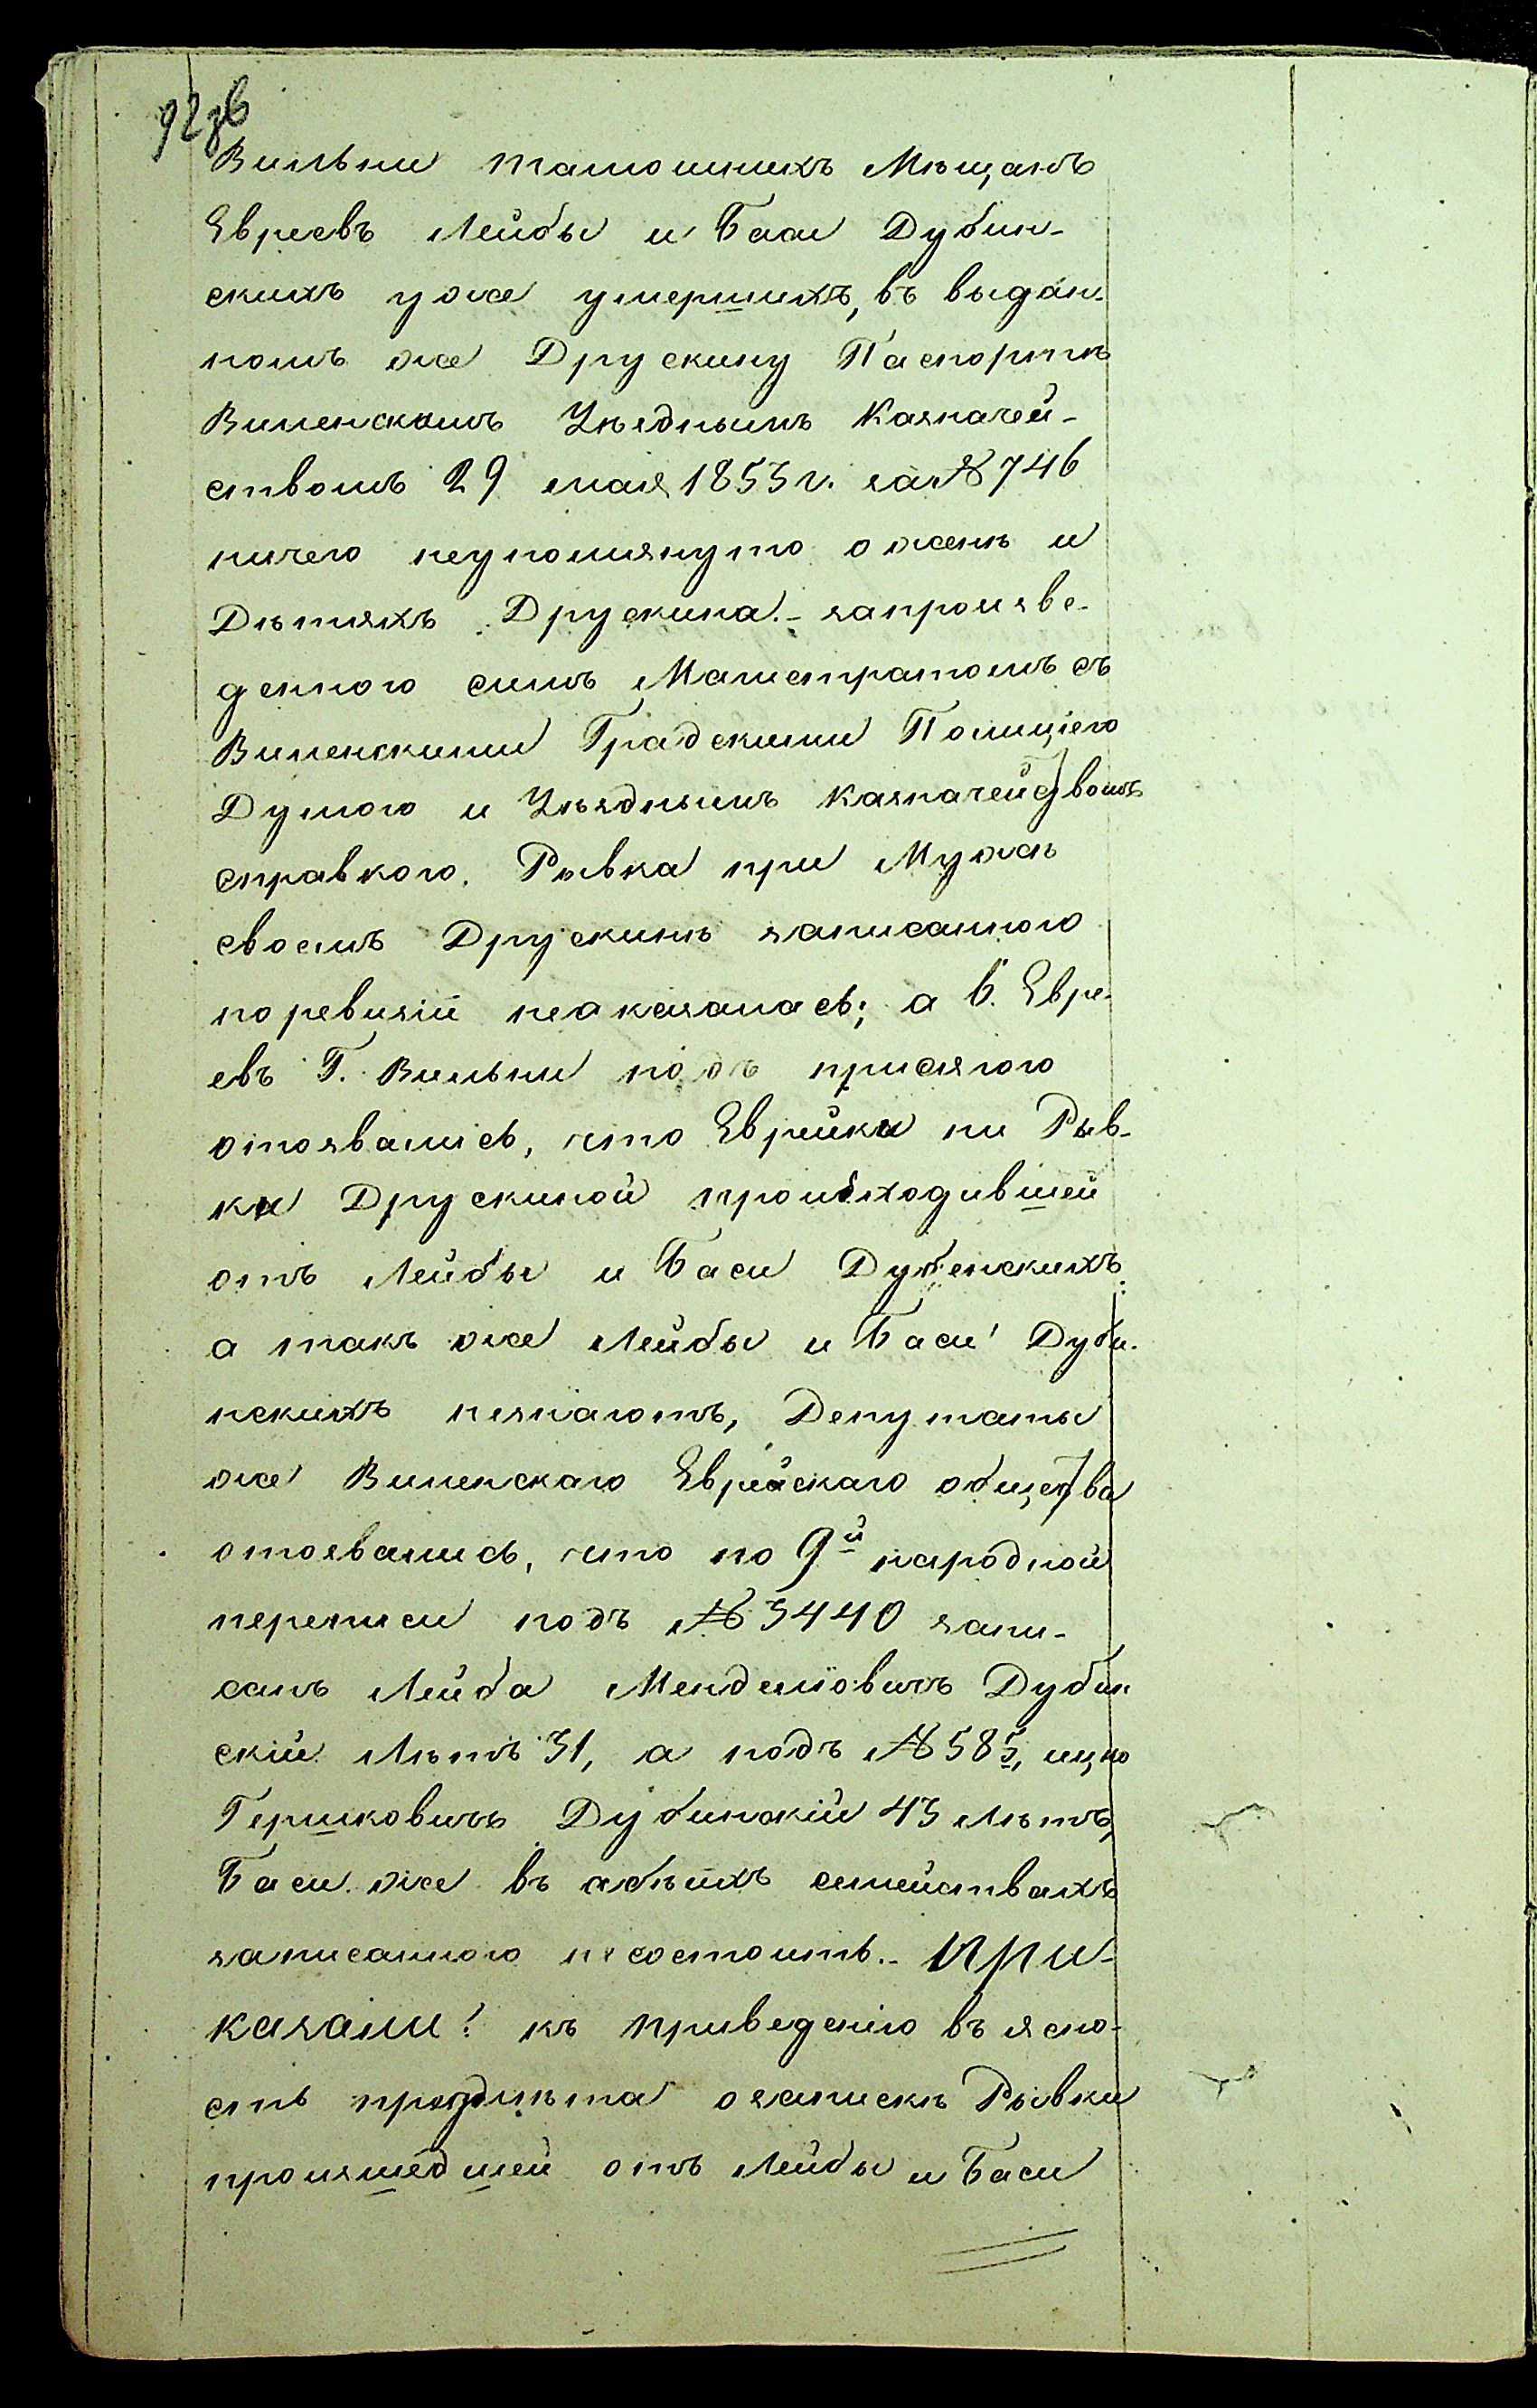 92 зв
Вильни тамошнихъ Мѣщанъ
Евреевъ Лейбы и Баси Дубин-
скихъ уже умершихъ, въ выдан-
номъ же Друскину Паспортѣ
Виленскимъ Уѣзднымъ Казначей-
ствомъ 29 мая 1853 г. за № 746
ничего неупомянуто о женѣ и
Дѣтяхъ Друскина.- запроизве-
денною симъ Магистратомъ съ
Виленскими Градскими Полициею
Думою и Уѣзднымъ Казначействомъ
справкою. Рывка при Мужѣ
своемъ Друскинѣ записанною
поревизіи неаказалась; а 6. Евре-
евъ Г. Вильни подъ присягою
отозвались, что Еврейки ни Рыв-
ки Друскиной происходившей
отъ Лейбы и Баси Дубенскихъ
а такъ же Лейбы и Баси Дуби-
нскихъ незнаютъ, Депутаты
же Виленскаго Еврейскаго общества
отозвались, что по 9й народной
переписи подъ № 3440 запи-
санъ Лейба Менделіовичъ Дубин
скій Лѣтъ 31, а подъ № 585, ицко
Гершковичъ Дубинскій 43 Лѣтъ,
Баси же въ абѣихъ семействахъ
записанною несостоитъ.- При-
казали: къ приведенію въ ясно-
сть предмѣта озапискѣ Рывки
произшедшей отъ Лейбы и Баси